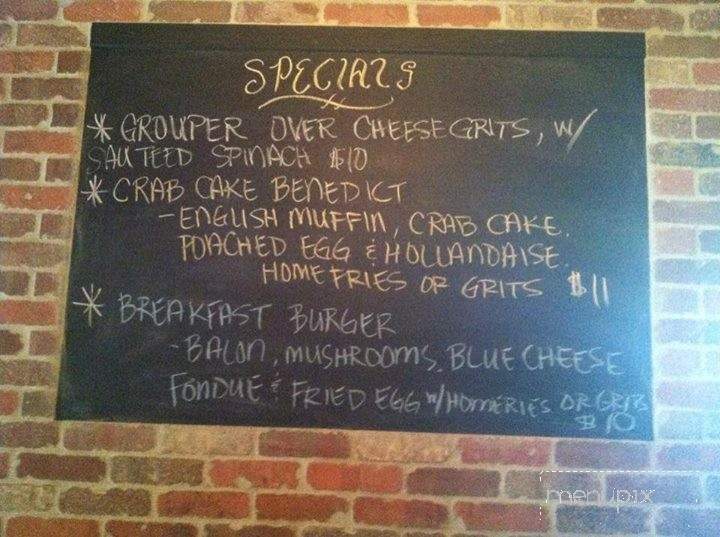 SPECIALS
* GROUPER OVER CHEESE GRITS, W/
SAUTEED SPINACH $10
* CRAB CAKE BENEDICT
- ENGLISH MUFFIN, CRAB CAKE.
POACHED EGG & HOLLANDAISE.
HOME FRIES OR GRITS $11
* BREAKFAST BURGER
- BACON, MUSHROOMS, BLUE CHEESE
FONDUE & FRIED EGG W/HOMERIES OR GRITS
$10
menupix